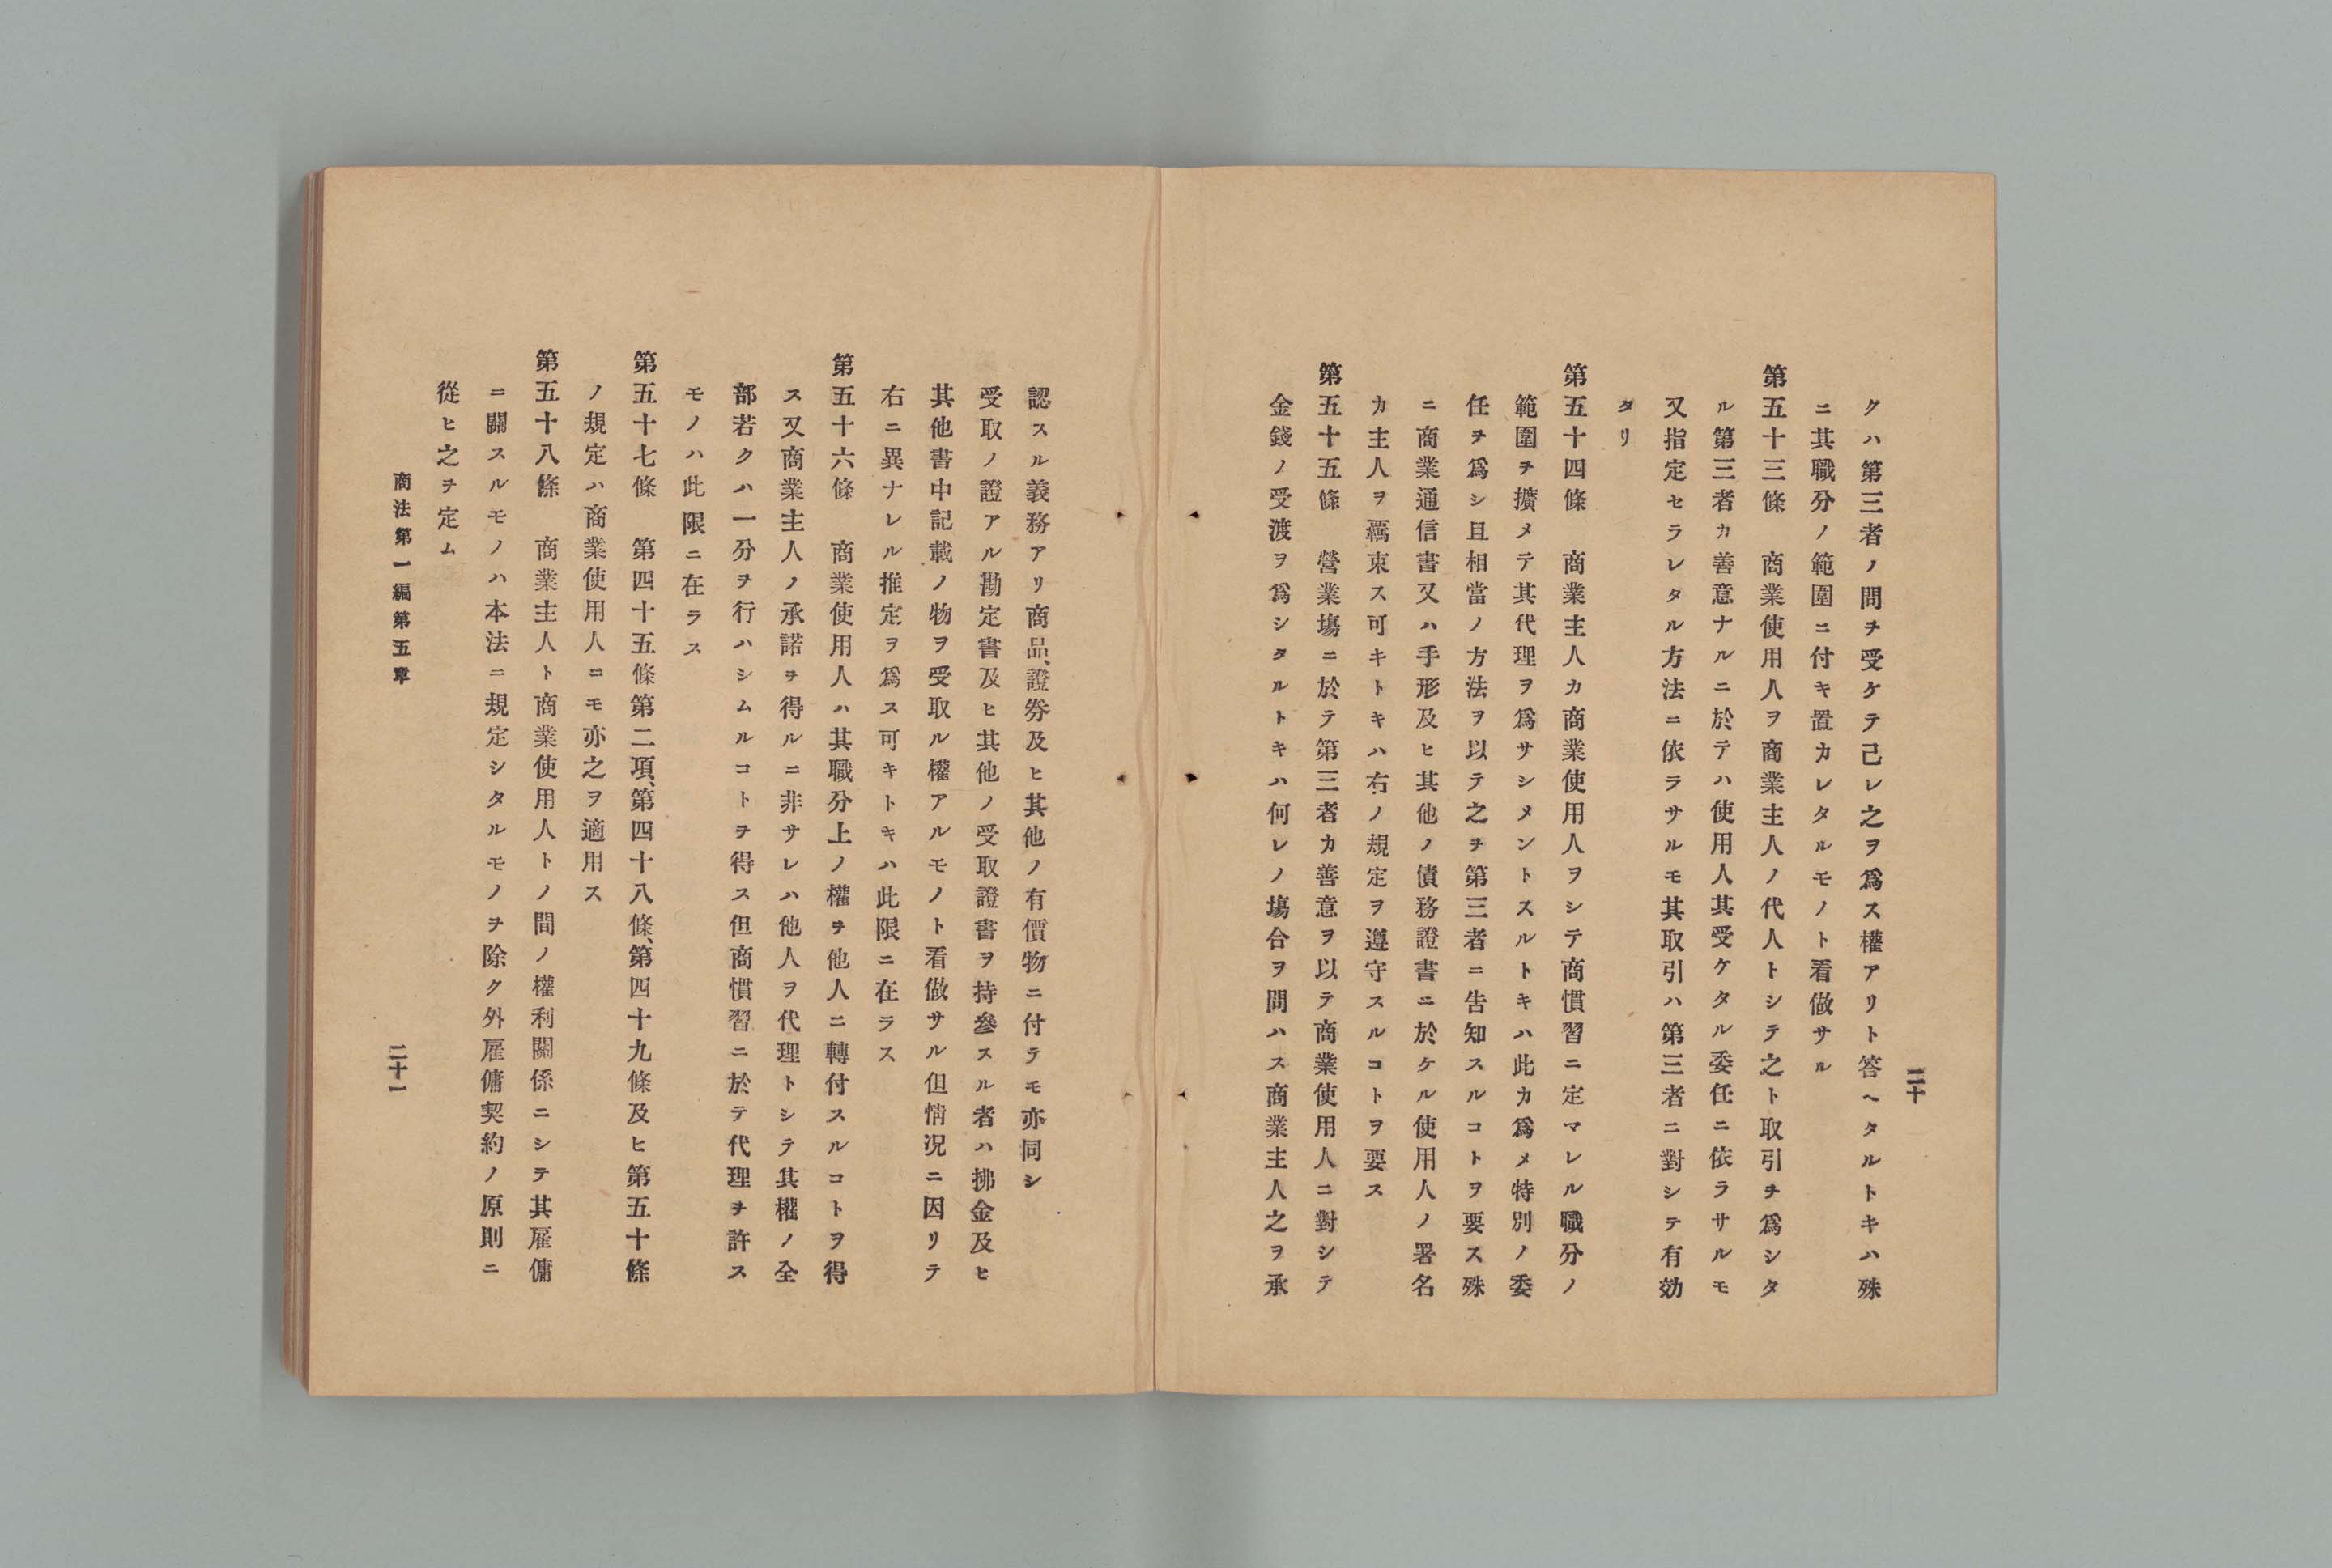 二十
クハ第三者ノ問ヲ受ケテ己レ之ヲ爲ス權アリト答ヘタルトキハ殊
ニ其職分ノ範圍ニ付キ置カレタルモノト看做サル
第五十三條　商業使用人ヲ商業主人ノ代人トシテ之ト取引ヲ爲シタ
ル第三者カ善意ナルニ於テハ使用人其受ケタル委任ニ依ラサルモ
又指定セラレタル方法ニ依ラサルモ其取引ハ第三者ニ對シテ有効
タリ
第五十四條　商業主人カ商業使用人ヲシテ商慣習ニ定マレル職分ノ
範圍ヲ擴メテ其代理ヲ爲サシメントスルトキハ此カ爲メ特別ノ委
任ヲ爲シ且相當ノ方法ヲ以テ之ヲ第三者ニ告知スルコトヲ要ス殊
ニ商業通信書又ハ手形及ヒ其他ノ債務證書ニ於ケル使用人ノ署名
カ主人ヲ羈束ス可キトキハ右ノ規定ヲ遵守スルコトヲ要ス
第五十五條　營業塲ニ於テ第三者カ善意ヲ以テ商業使用人ニ對シテ
金錢ノ受渡ヲ爲シタルトキハ何レノ塲合ヲ問ハス商業主人之ヲ承
認スル義務アリ商品、證券及ヒ其他ノ有價物ニ付テモ亦同シ
受取ノ證アル勘定書及ヒ其他ノ受取證書ヲ持參スル者ハ拂金及ヒ
其他書中記載ノ物ヲ受取ル權アルモノト看做サル但情况ニ因リテ
右ニ異ナレル推定ヲ爲ス可キトキハ此限ニ在ラス
第五十六條　商業使用人ハ其職分上ノ權ヲ他人ニ轉付スルコトヲ得
ス又商業主人ノ承諾ヲ得ルニ非サレハ他人ヲ代理トシテ其權ノ全
部若クハ一分ヲ行ハシムルコトヲ得ス但商慣習ニ於テ代理ヲ許ス
モノハ此限ニ在ラス
第五十七條　第四十五條第二項、第四十八條、第四十九條及ヒ第五十條
ノ規定ハ商業使用人ニモ亦之ヲ適用ス
第五十八條　商業主人ト商業使用人トノ間ノ權利關係ニシテ其雇傭
ニ關スルモノハ本法ニ規定シタルモノヲ除ク外雇傭契約ノ原則ニ
從ヒ之ヲ定ム
商法第一編第五章
二十一